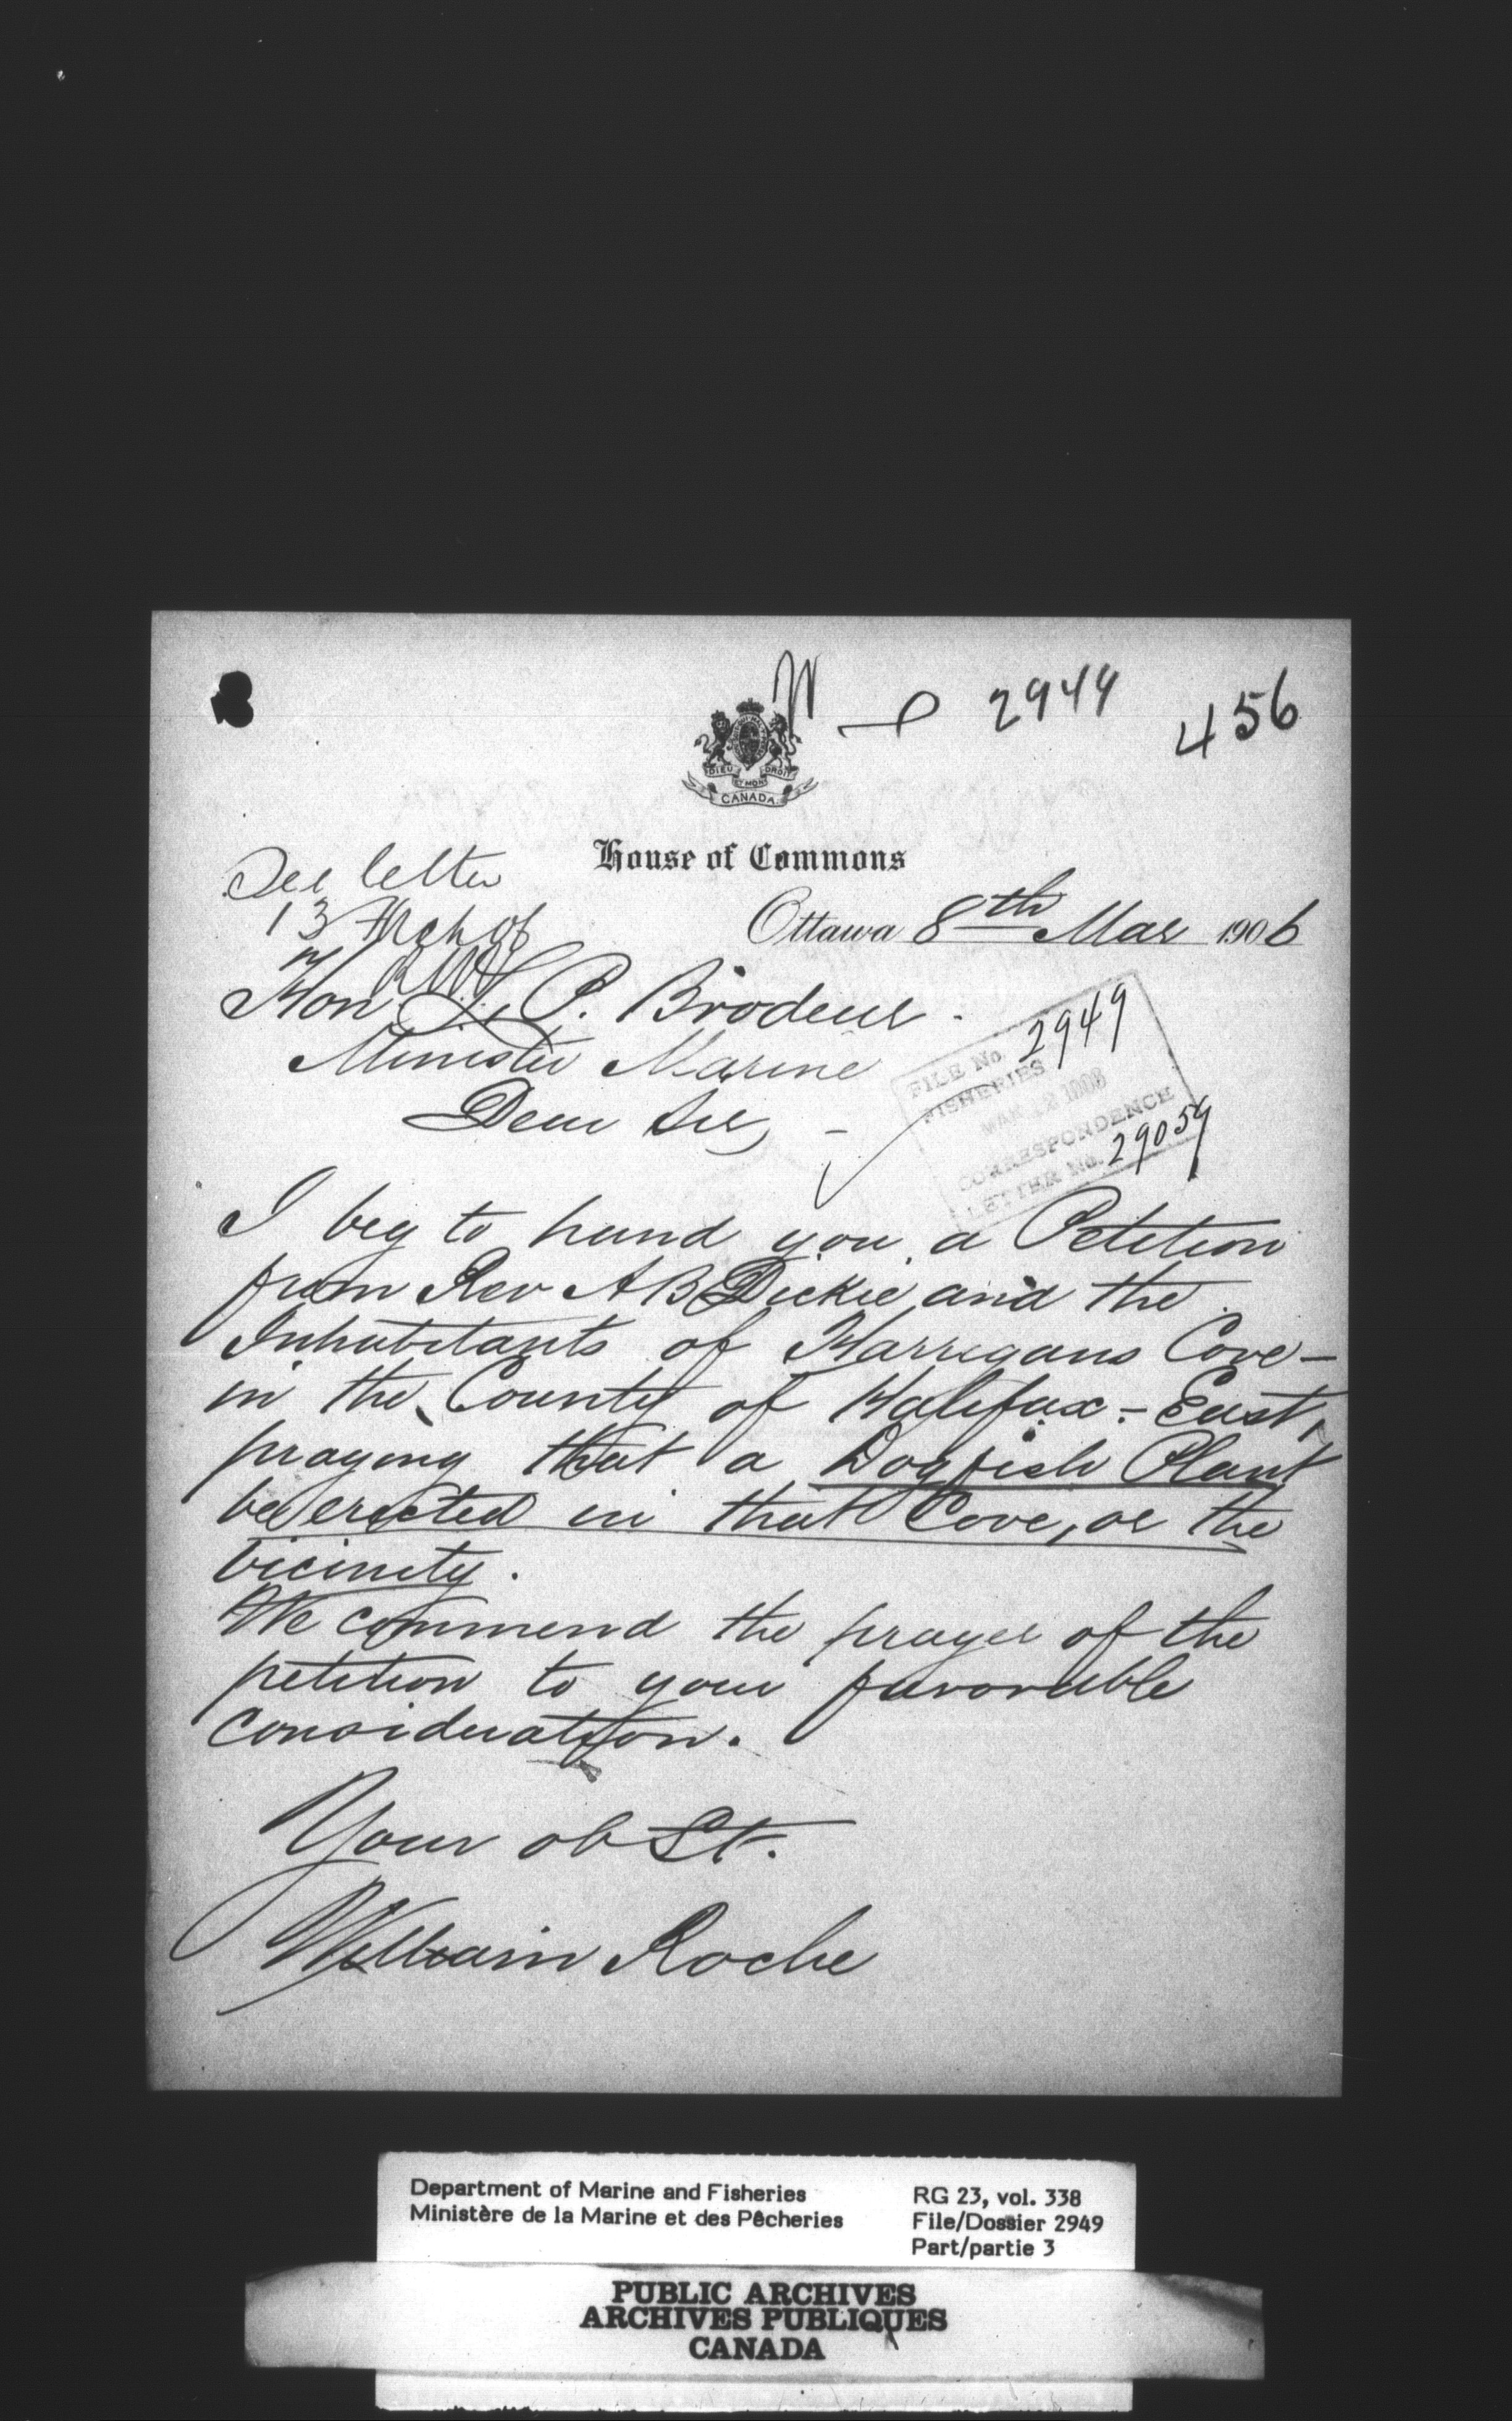 2949
456
DIEU ET MON DROIT
CANADA
House of Commons
See letter
13 Mch 06
Ottawa 8th Mar 1906
Hon L. P. Brodeur.
Minister Marine
Dear Sir, -
FILE No. 2949
FISHERIES
MAR 12 1906
CORRESPONDENCE
LETTER No. 29059
I beg to hand you a Petition
from Rev A B Dickie and the
Inhabitants of Harrigans Cove -
in the County of Halifax - East,
praying that a Dogfish Plant
be erected in that Cove, or the
vicinity.
We commend the prayer of the
petition to your favorable
consideration.
Your ob St.
William Roche
Department of Marine and Fisheries
Ministère de la Marine et des Pêcheries
RG 23, vol. 338
File/Dossier 2949
Part/partie 3
PUBLIC ARCHIVES
ARCHIVES PUBLIQUES
CANADA